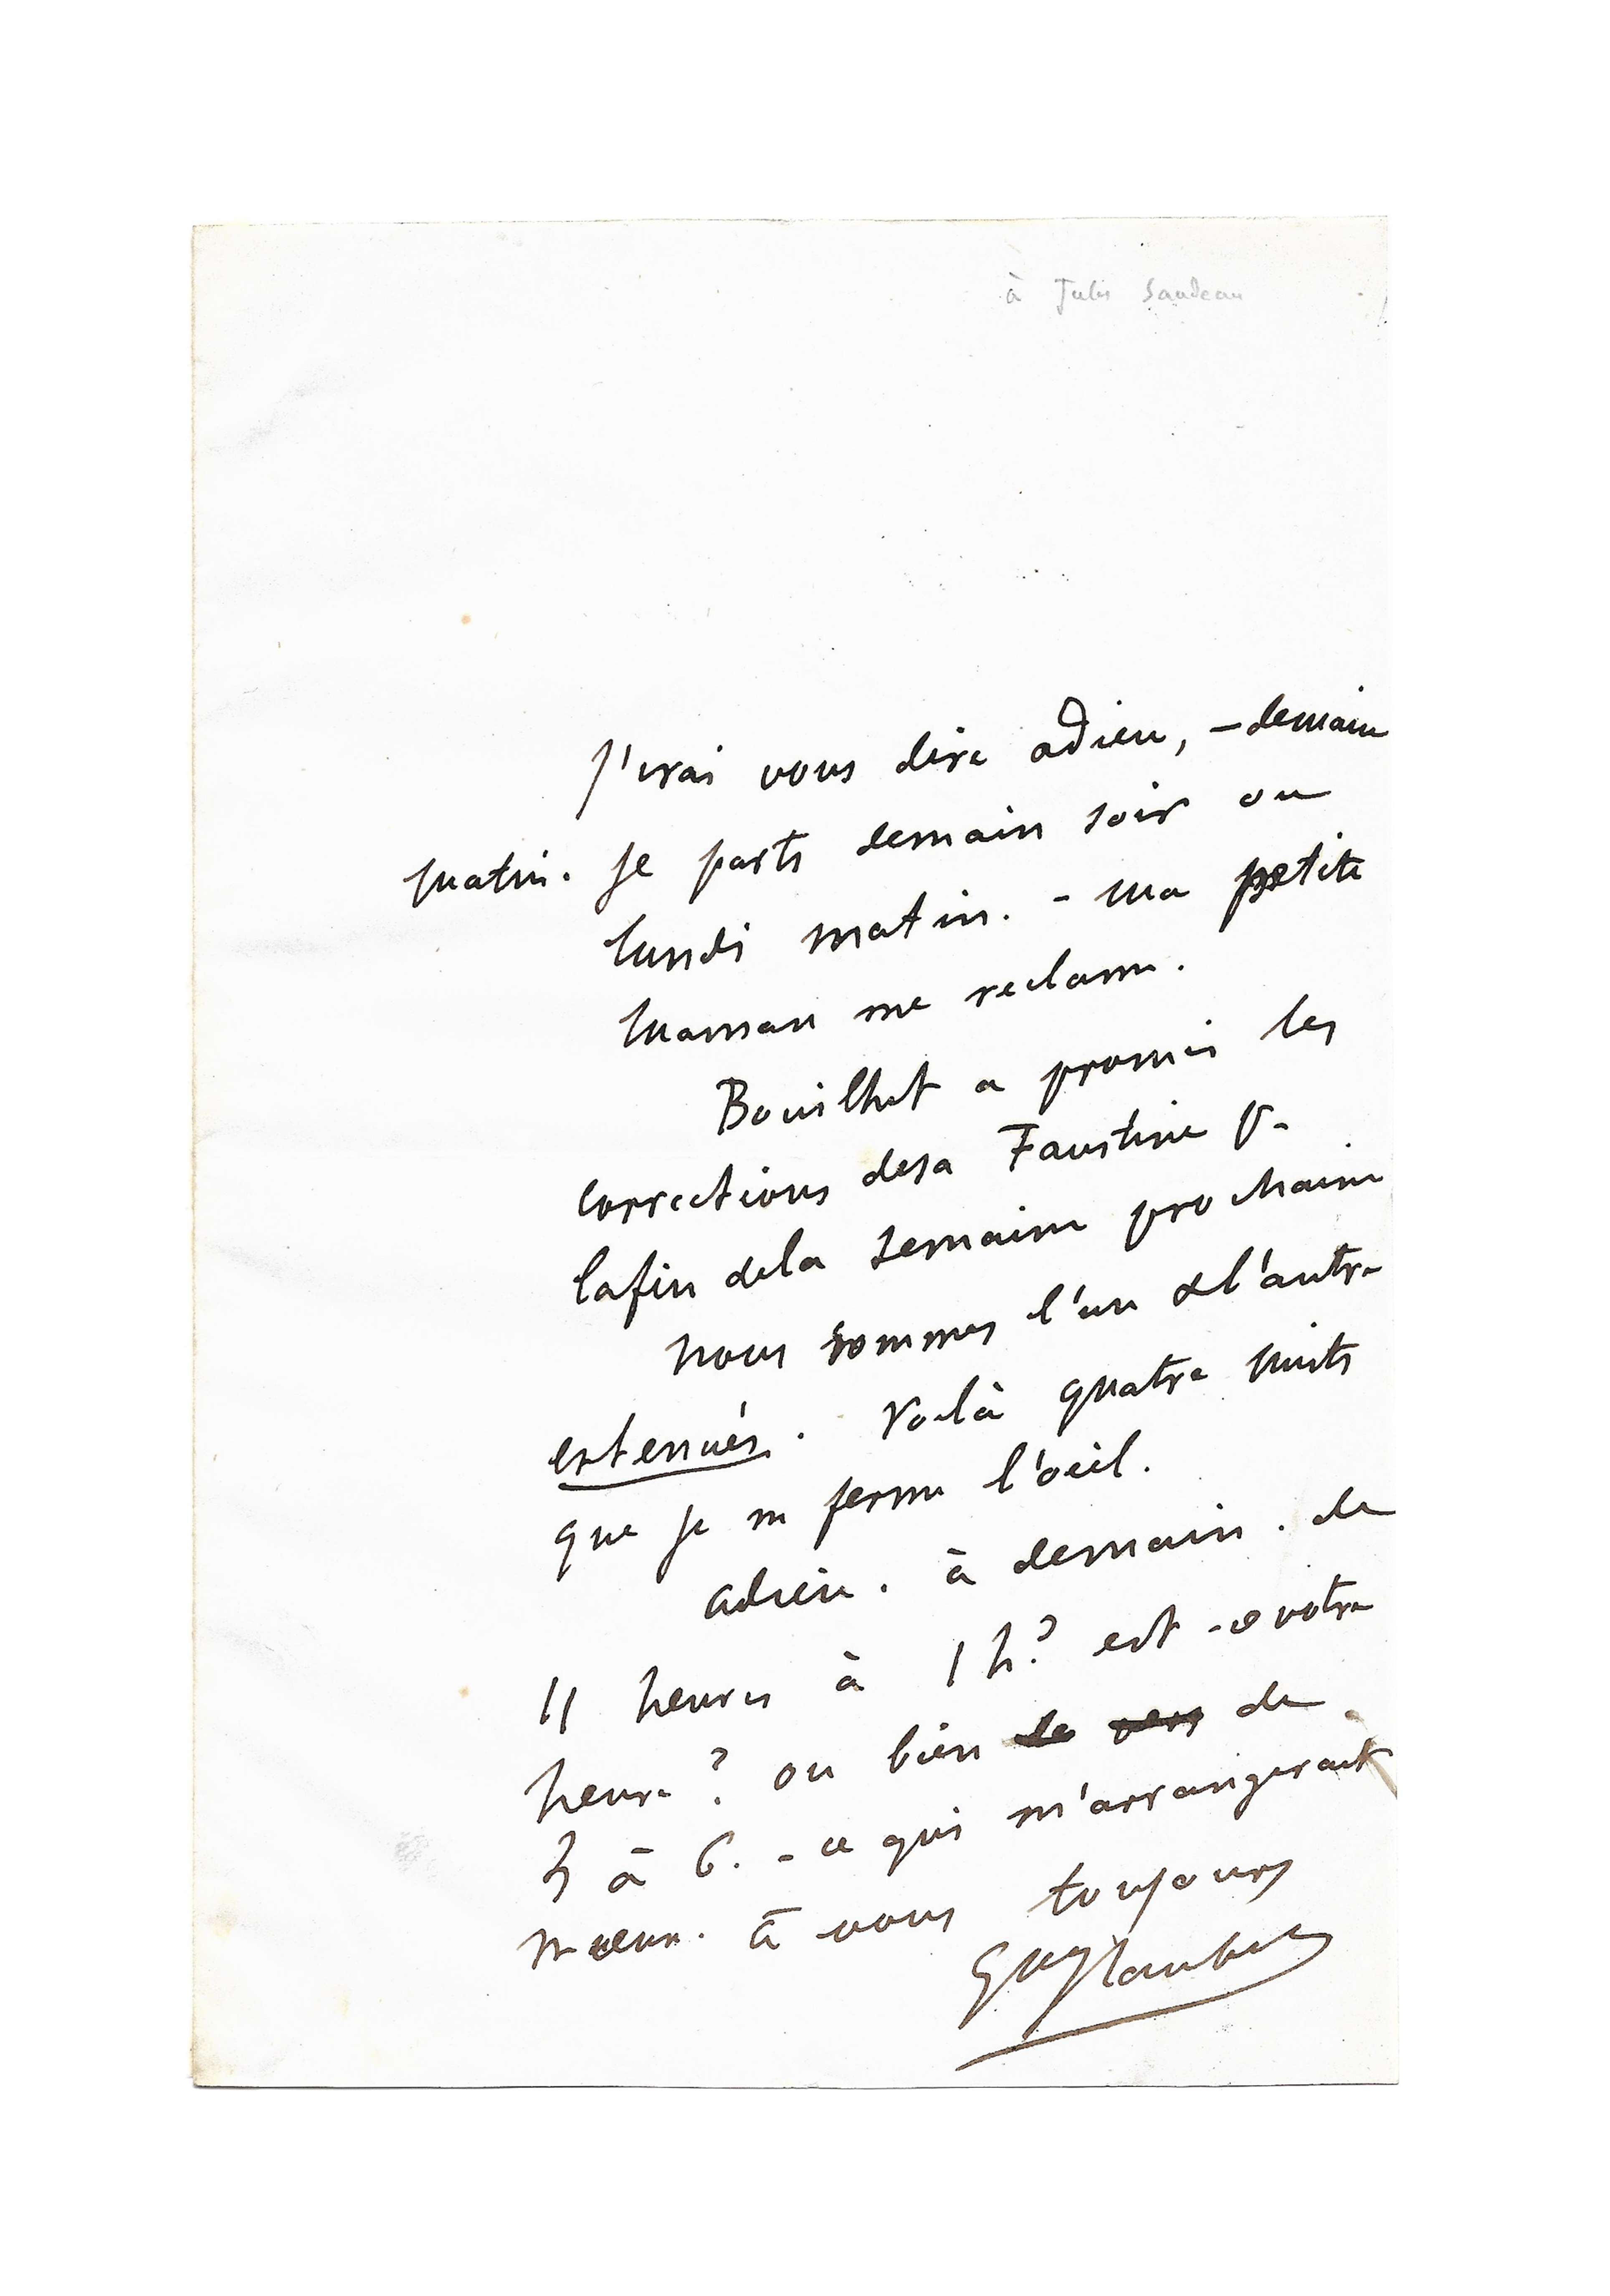 à Jules Sandeau
J'irai vous dire adieu, – demain
matin. Je parts demain soir ou
lundi matin. – ma petite
maman me reclame.
Bouilhet a promis les
corrections desa Faustine pr
lafin dela semaine prochaine
nous sommes l'un & l'autre
extenués. Voilà quatre nuits
que je ne ferme l'oeil.
adieu. à demain. de
11 heures à 1 h? est-ce votre
heure? ou bien de
à 6. – ce qui m'arrangerait
mieux. à vous toujours
GveFlaubert